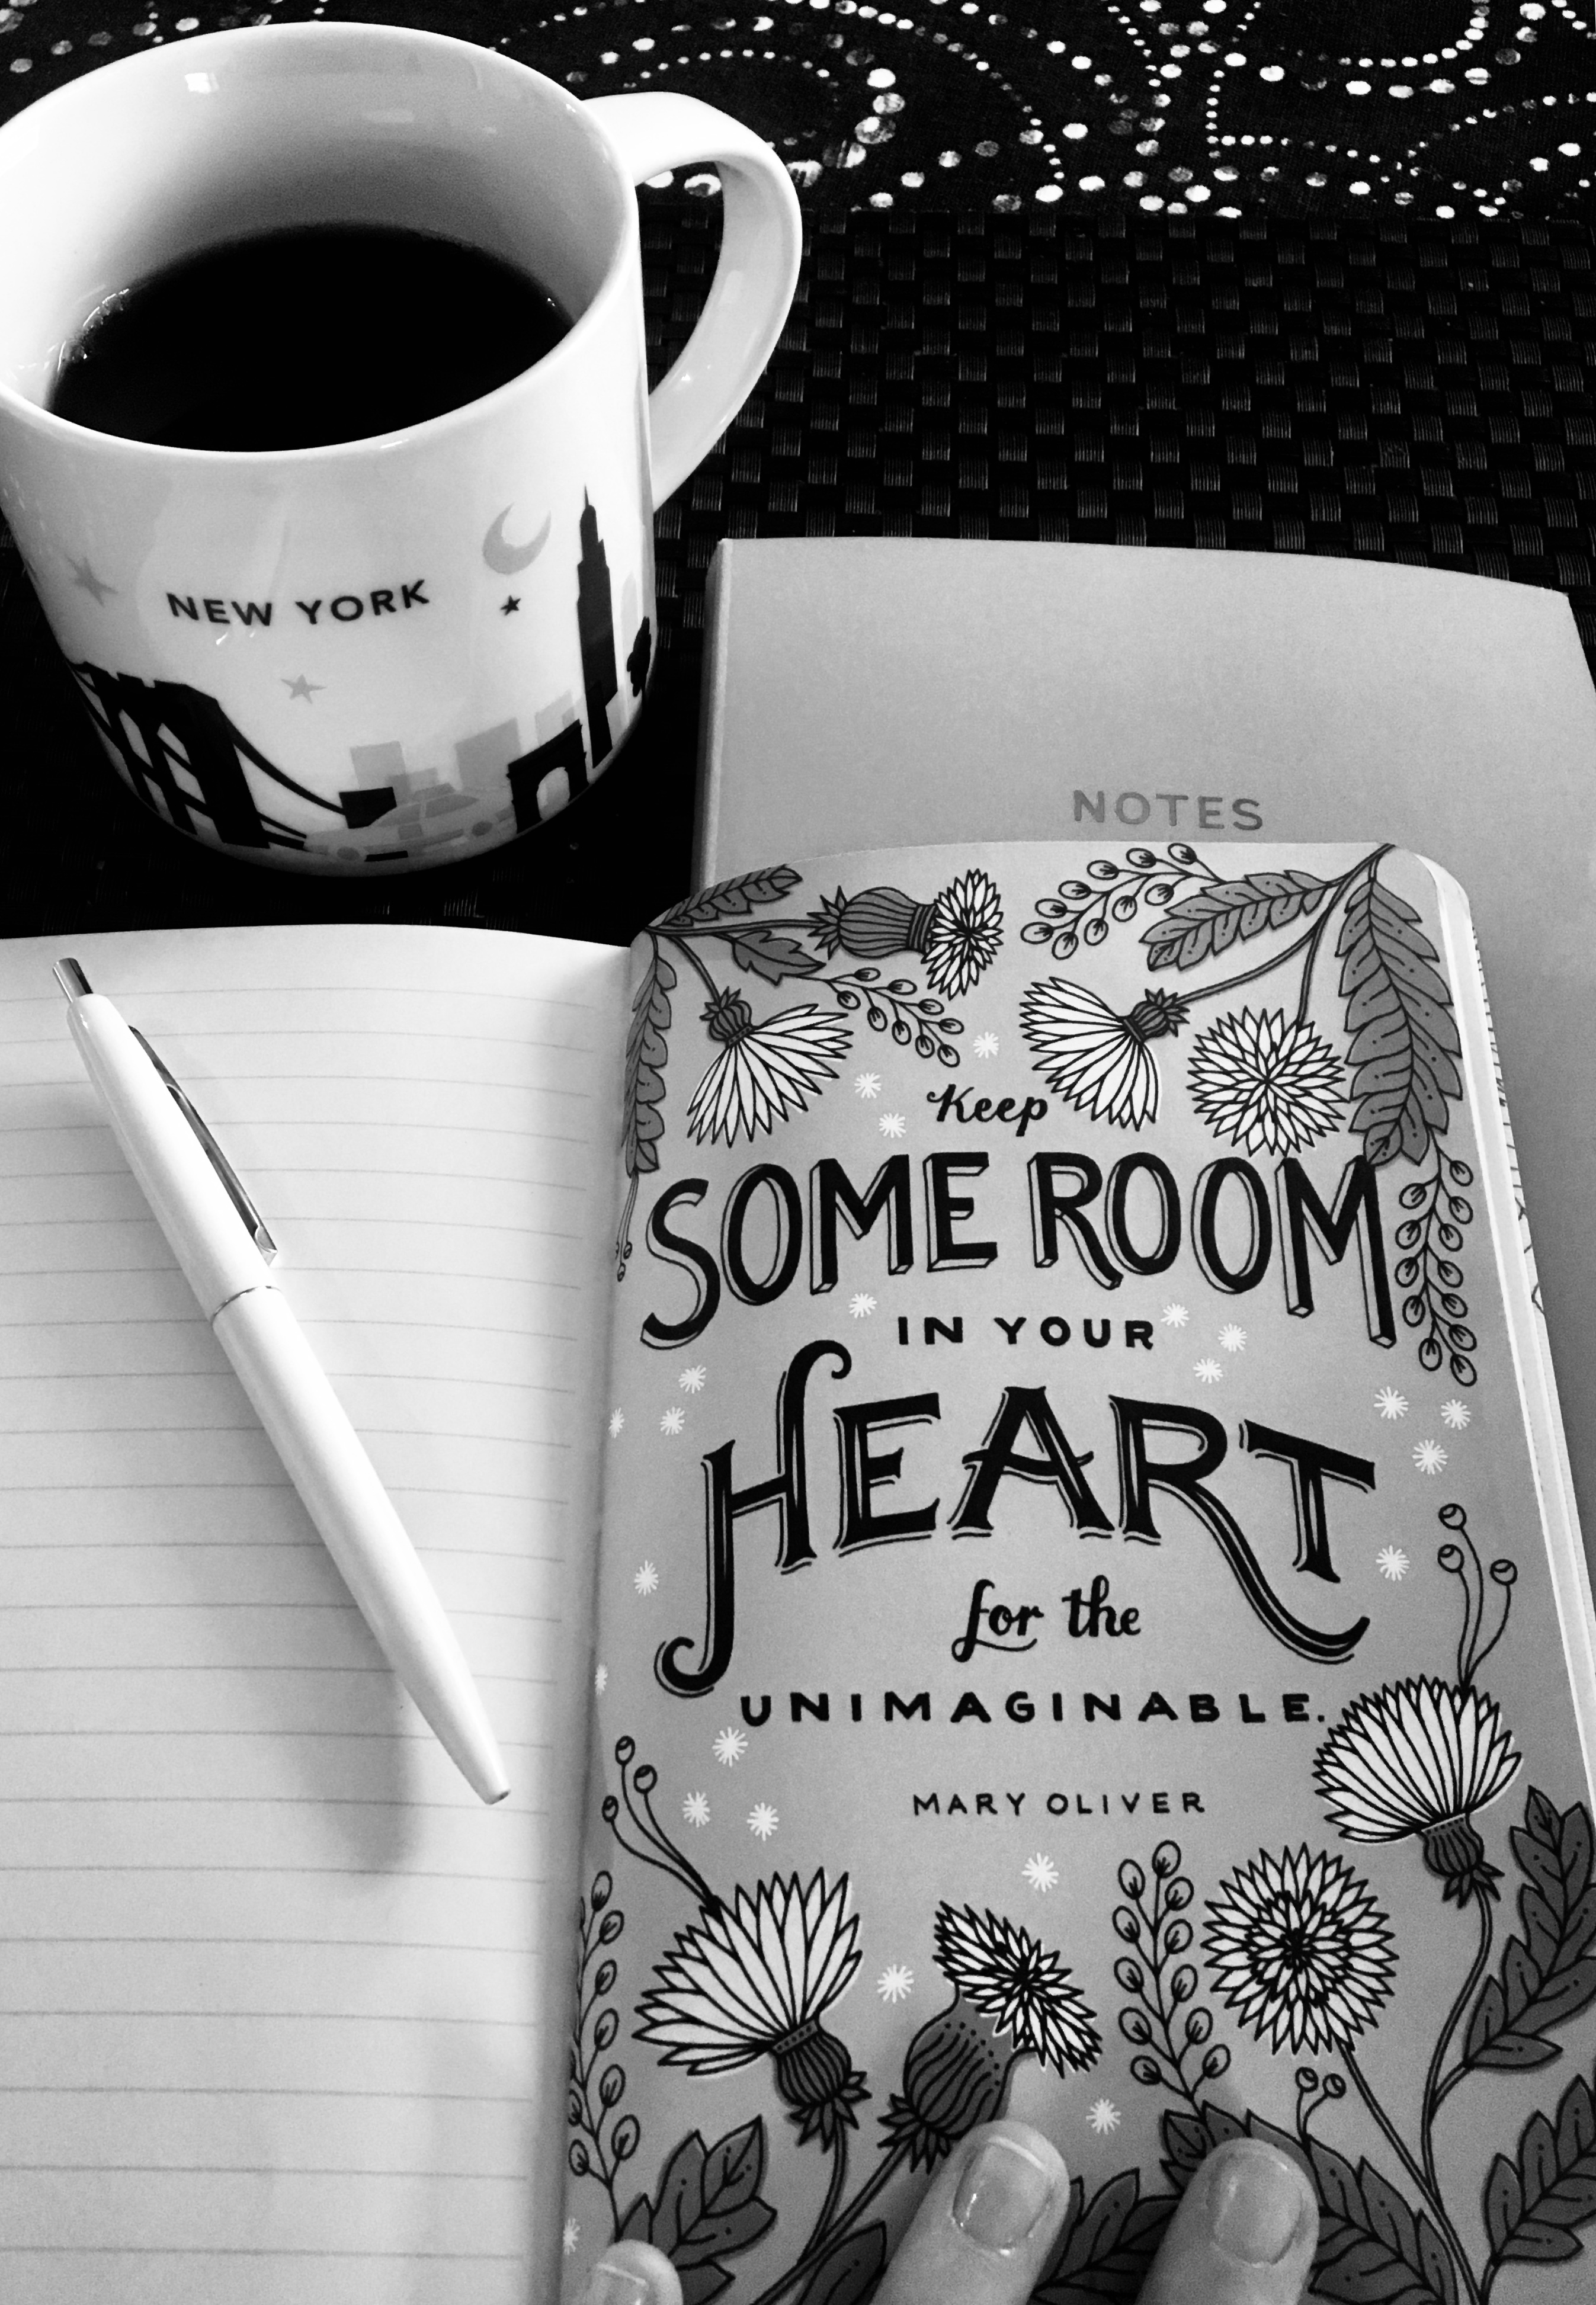 NEW YORK
NOTES
Keep
SOME ROOM
IN YOUR
HEART
for the
UNIMAGINABLE.
MARY OLIVER